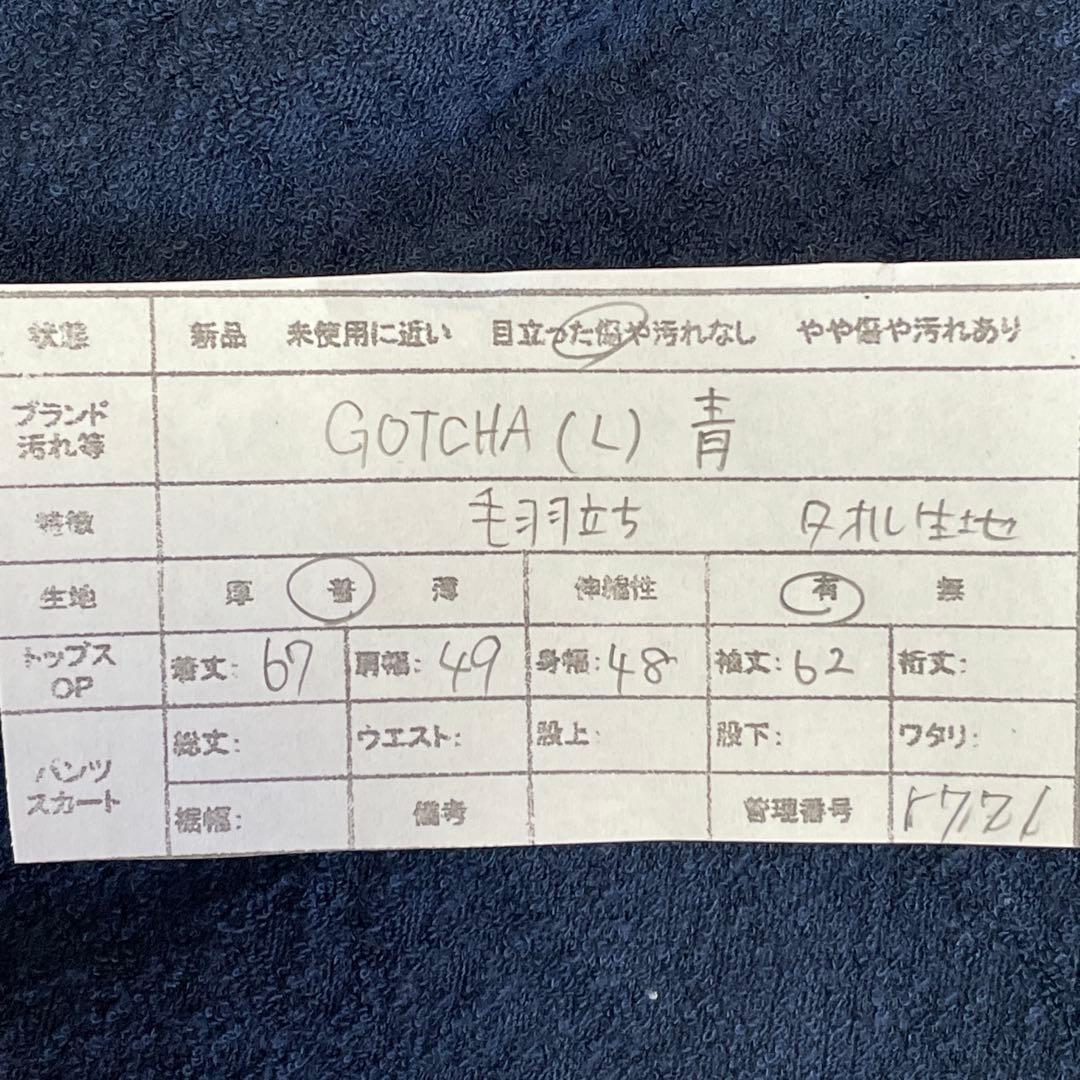 状態 新品 未使用に近い 目立った傷や汚れなし やや傷や汚れあり
ブランド
汚れ等 GOTCHA (L) 青
特徴 毛羽立ち タオル生地
生地 厚 普 薄 伸縮性 有 無
トップス
OP 着丈: 67 肩幅: 49 身幅: 48 袖丈: 62 裄丈:
パンツ
スカート 総丈: ウエスト: 股上: 股下: ワタリ:
裾幅: 備考 管理番号